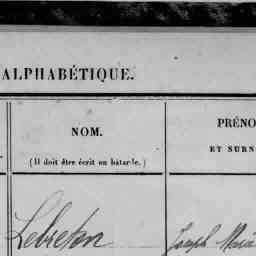 ALPHABÉTIQUE.
NOM.
(Il doit être écrit en bâtarde.)
PRÉNO
ET SURN
Lebreton
Joseph Marie